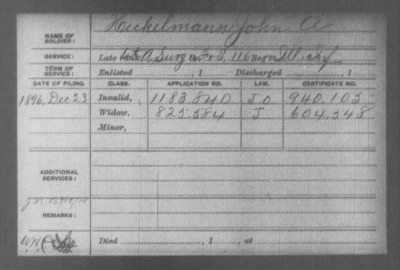 NAME OF SOLDIER: Heckelmann, John A
SERVICE: Late A Surg F & S, 116 Reg't Ill
TERM OF SERVICE: Enlisted , 1 Discharged , 1
DATE OF FILING. CLASS. APPLICATION NO. LAW. CERTIFICATE NO.
1896, Dec 23 Invalid, 1183.840 940.103
Widow, 825.584 J. 604.548
Minor,
ADDITIONAL SERVICES:
REMARKS:
Died , 1 , at